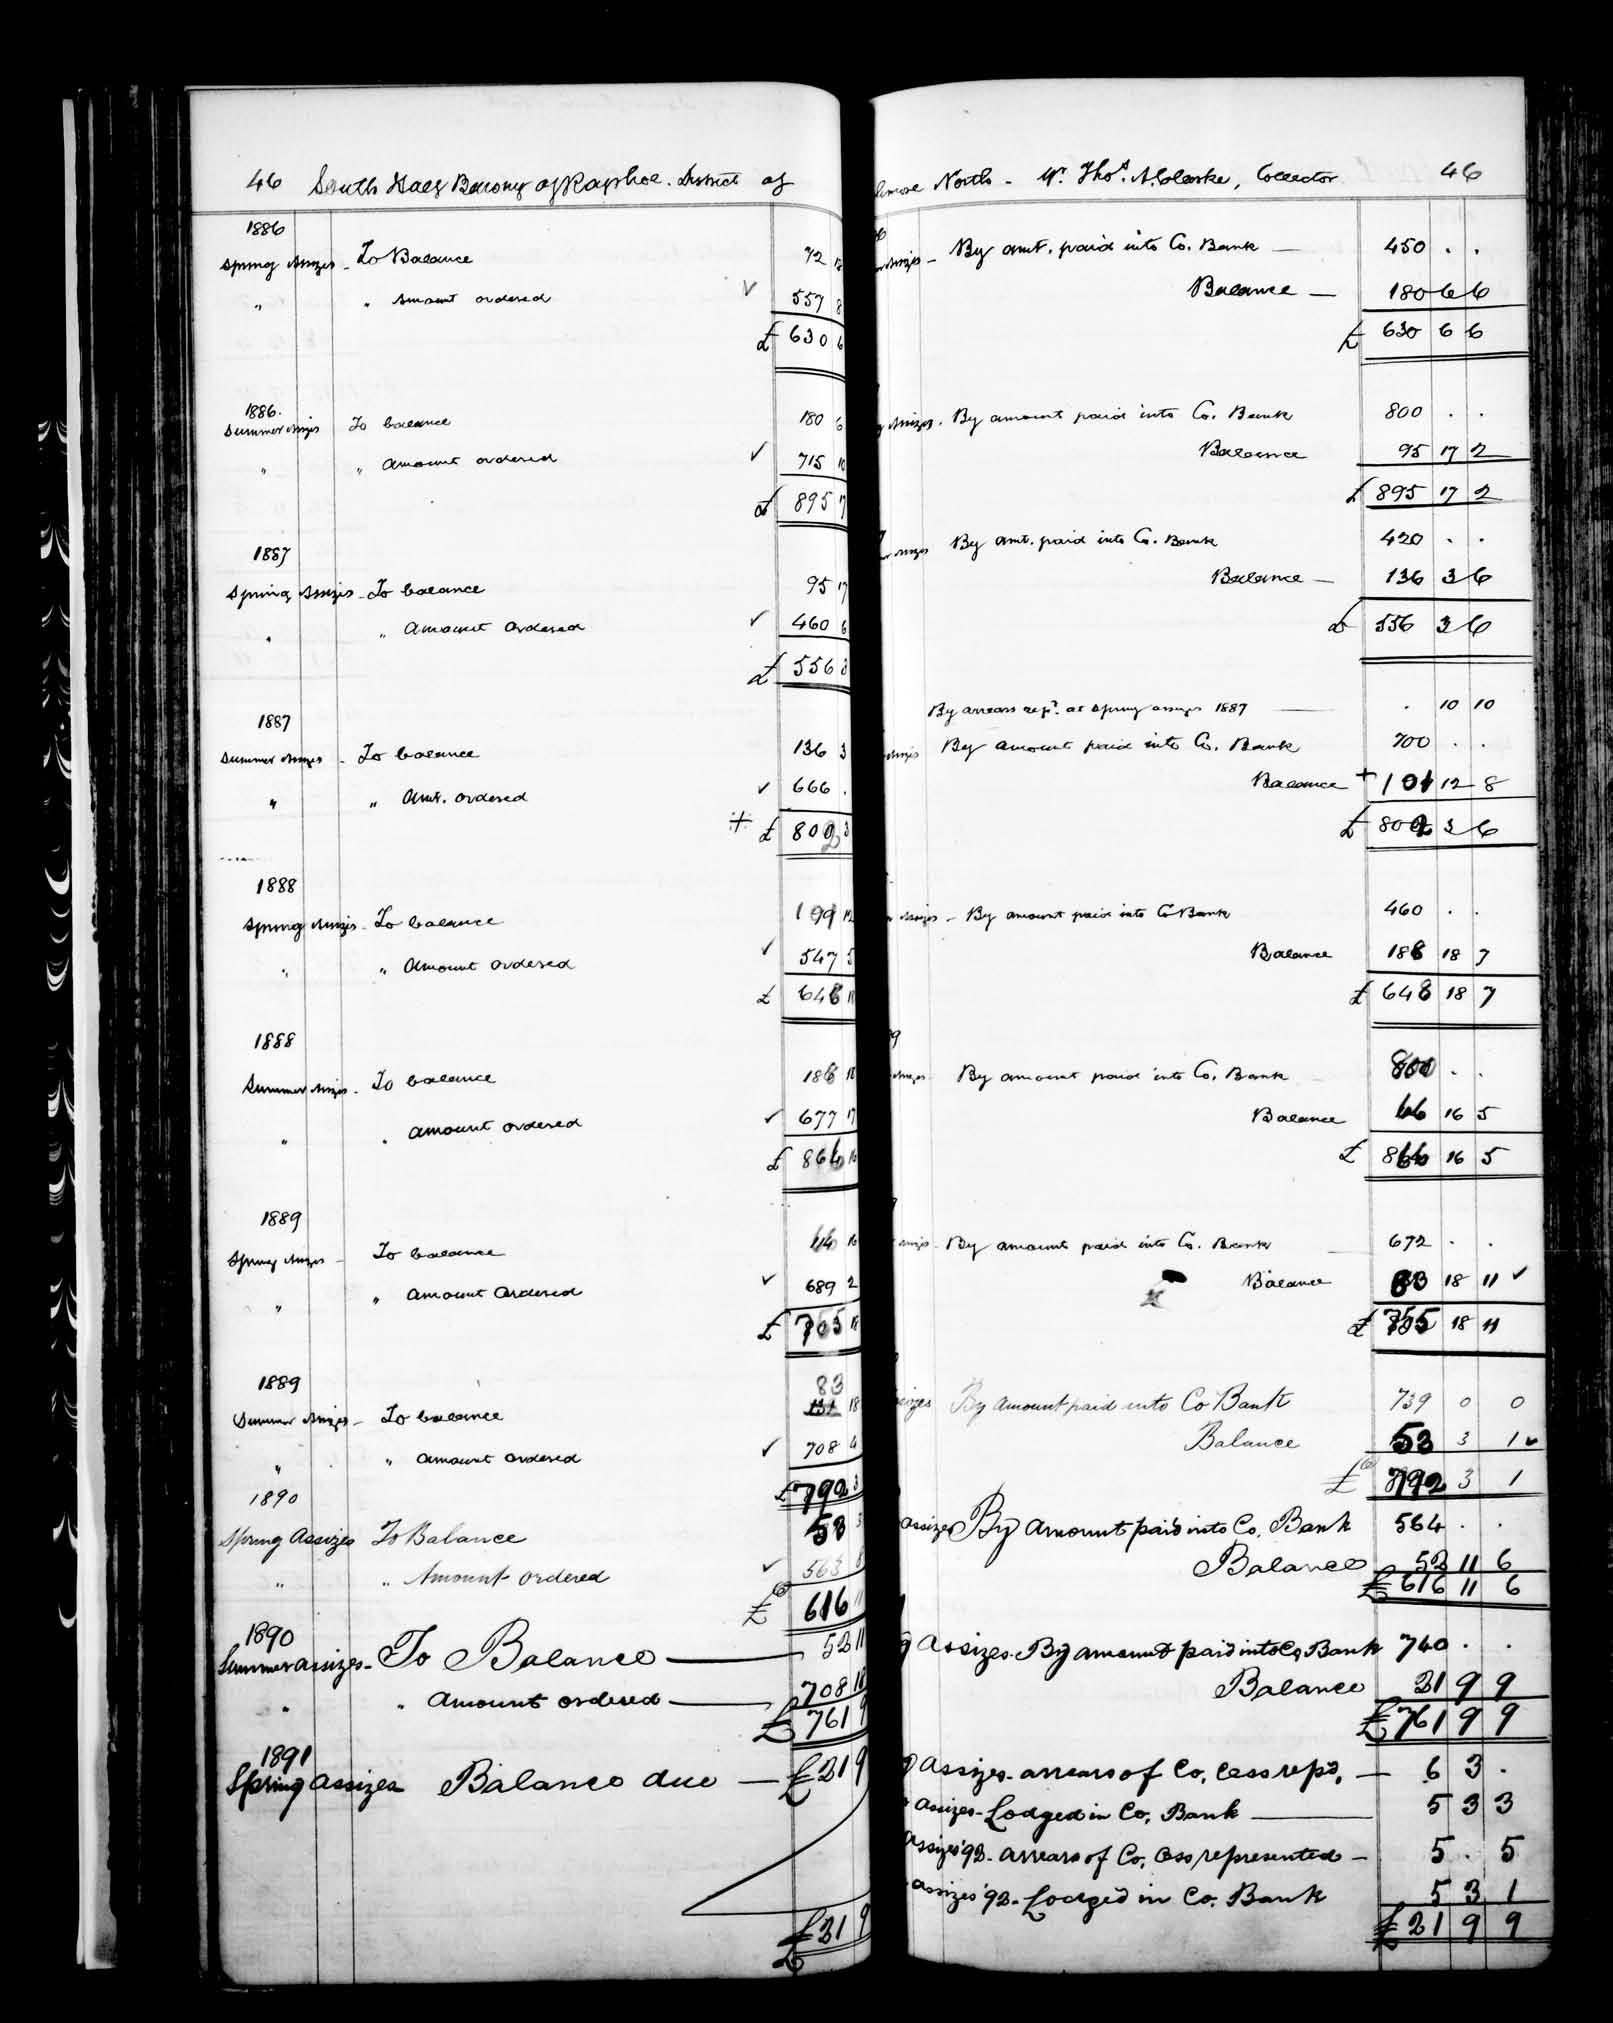 46 South Half Barony of Raphoe. District of
1886
Spring Assizes - To Balance 72
" " Amount ordered ✓ 557 8
£ 630 6
1886.
Summer Assizes To balance 180 6
" " Amount ordered ✓ 715 10
£ 895 17
1887
Spring Assizes - To balance 95 17
" " Amount ordered ✓ 460 6
£ 556 3
1887
Summer Assizes - To balance 136 3
" " Amt. ordered ✓ 666 .
+ £ 802 3
1888
Spring Assizes - To balance 12
" " Amount ordered ✓ 547 5
£ 648 18
1888
Summer Assizes - To balance 186 18
" " Amount ordered ✓ 677 17
£ 864 16
1889
Spring Assizes - To balance 16
" " Amount ordered ✓ 689 2
£ 18
1889 83
Summer Assizes - To balance 18
" " Amount ordered ✓ 708 4
£ 792 3
1890
Spring Assizes To Balance 53 3
" " Amount ordered ✓ 563 8
£ 616 11
1890
Summer Assizes - To Balance 52 11
" " Amount ordered 708 18
£ 761 9
1891
Spring Assizes Balance due £ 21 9
£ 21 9
North - Mr. Thos. A. Clarke, Collector 46
Assizes - By amt. paid into Co. Bank 450 . .
Balance 180 6 6
£ 630 6 6
Assizes. By amount paid into Co. Bank 800 . .
Balance 95 17 2
£ 895 17 2
Assizes By amt. paid into Co. Bank 420 . .
Balance 136 3 6
£ 556 3 6
By arrears rep.d at Spring assizes 1887 . 10 10
Assizes By amount paid into Co. Bank 700 . .
Balance + 101 12 8
£ 802 3 6
Assizes - By amount paid into Co Bank 460 . .
Balance 188 18 7
£ 648 18 7
Assizes - By amount paid into Co. Bank 800 . .
Balance 66 16 5
£ 866 16 5
Assizes - By amount paid into Co. Bank 672 . .
Balance 83 18 11 ✓
£ 755 18 11
Assizes By amount paid into Co Bank 739 0 0
Balance 53 3 1 ✓
£ 792 3 1
Assizes By amount paid into Co. Bank 564 . .
Balance 52 11 6
£ 616 11 6
Assizes. By amount paid into Co Bank 740 . .
Balance 21 9 9
£ 761 9 9
Assizes - arrears of Co. Cess repd. 6 3 .
Assizes - Lodged in Co. Bank 5 3 3
Assizes '92 - arrears of Co. Cess represented - 5 . 5
Assizes '92 - Lodged in Co. Bank 5 3 1
£ 21 9 9